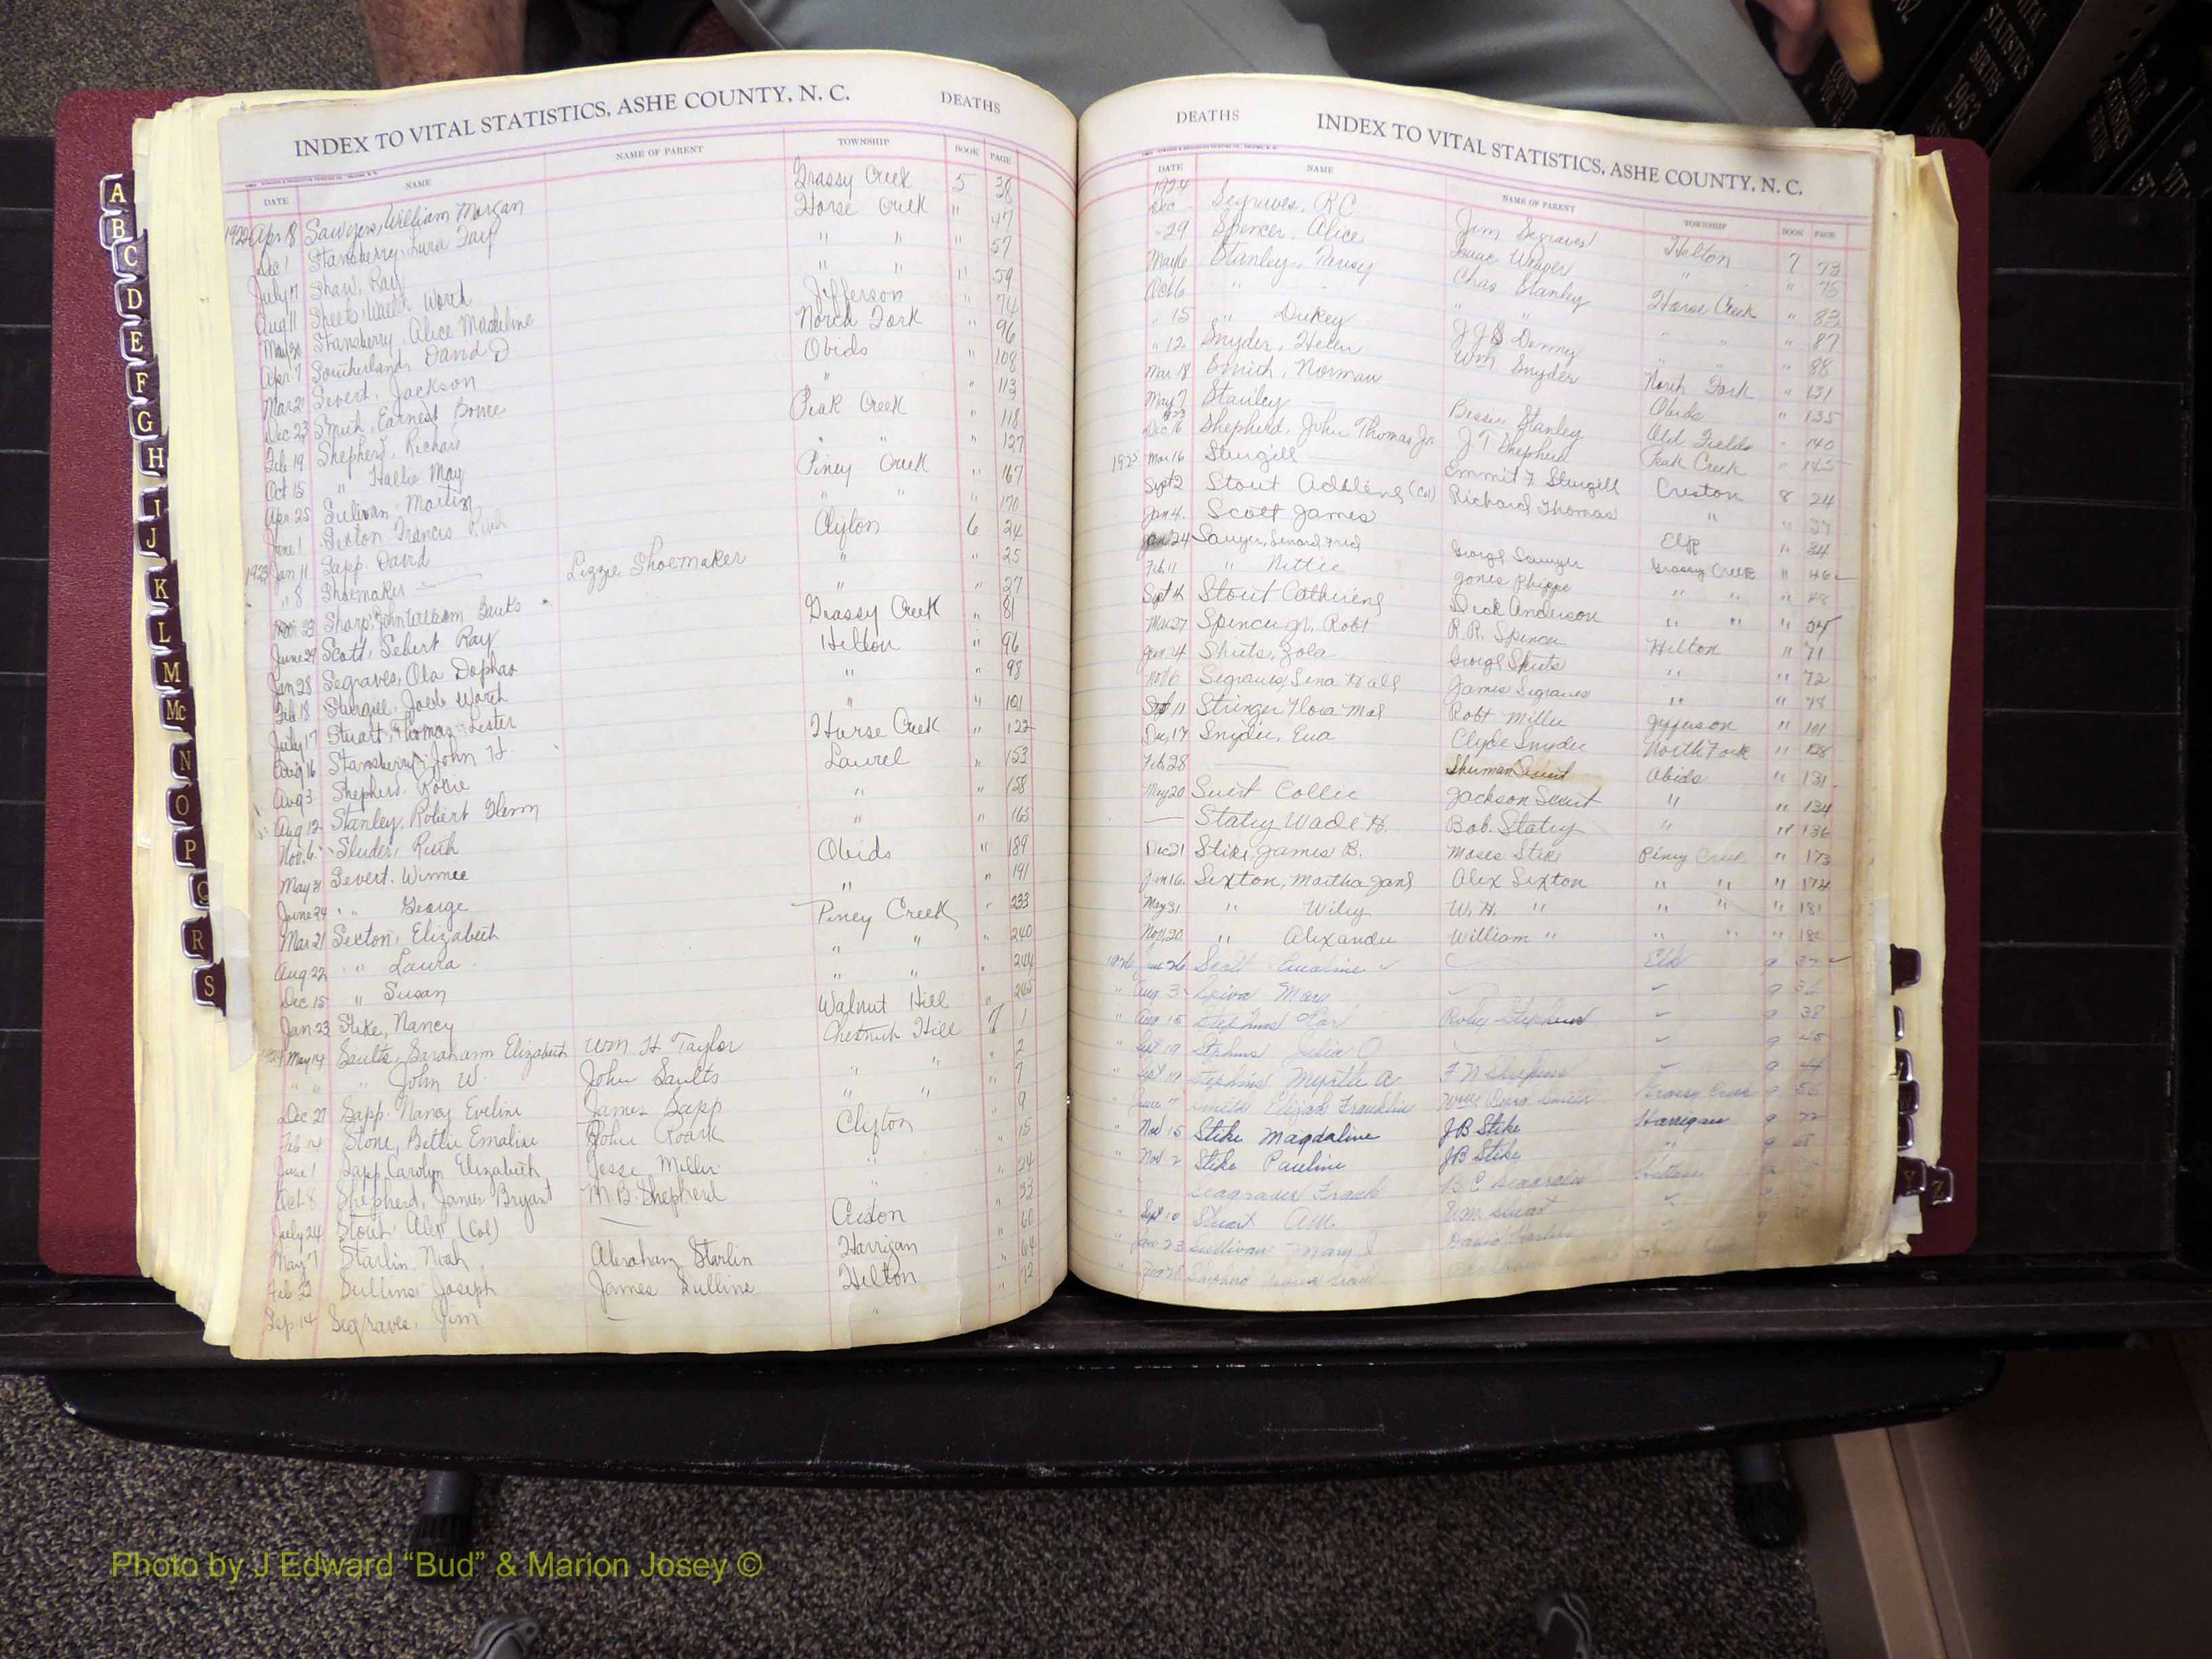 INDEX TO VITAL STATISTICS, ASHE COUNTY, N. C. DEATHS
DATE NAME NAME OF PARENT TOWNSHIP BOOK PAGE
1922 Apr 18 Sawyers, William Morgan Grassy Creek 5 38
Dec 1 Stansberry, Lura Fay Horse Creek " 47
July 17 Shaw, Ray " " " 57
Aug 11 Sheets, Worth " " " 59
May 30 Stansberry, Alice Madeline Jefferson " 74
Apr 7 Southerland, David D North Fork " 96
Mar 21 Severt, Jackson Obids " 108
Dec 23 Smith, Earnest " " 113
Feb 19 Shepherd, Richard Peak Creek " 118
Oct 15 " Hallie May " " " 127
Apr 25 Sulivan, Martin Piney Creek " 167
June 1 Sexton, Francis " " " 170
1923 Jan 11 Sapp, David Clifton 6 24
" 8 Shoemaker — Lizzie Shoemaker " " 25
23 Sharp, John William " " 27
June 29 Scott, Sebert Ray Grassy Creek " 81
Jan 28 Segraves, Ola Helton " 96
Feb 18 Sturgill, Worth " " 98
July 17 Stuart, Thomas Lester " " 101
Aug 16 Stansberry, John H. Horse Creek " 122
Aug 3 Shepherd, Laurel " 153
Aug 12 Stanley, Robert Glenn " " 158
Nov. 6 Studer, Ruth " " 165
May 31 Severt, Winnie Obids " 189
June 24 " George " " 191
Mar 21 Sexton, Elizabeth Piney Creek " 233
Aug 22 " Laura " " " 240
Dec 15 " Susan " " " 244
Jan 23 Stike, Nancy Walnut Hill " 245
1924 May 14 Saults, Sarahann Elizabeth Wm H Taylor Chestnut Hill 7 1
" " " John W. John Saults " " 2
Dec 27 Sapp, Nancy Eveline James Sapp " " " 7
Feb 14 Stone, Bettie Emaline John Roark " " " 9
June 1 Sapp Carolyn Elizabeth Jesse Miller Clifton " 15
Oct 8 Shepherd, James Bryant M B Shepherd " " 24
July 24 Stout, Alex (Col) — " " 32
May 7 Starlin, Noah Abraham Starlin Creston " 60
Feb 22 Sullins, Joseph James Sullins Harrigan " 64
Sep 14 Segraves, Jim — Helton " 72
DEATHS INDEX TO VITAL STATISTICS, ASHE COUNTY, N. C.
DATE NAME NAME OF PARENT TOWNSHIP BOOK PAGE
1924 Dec — Segraves, R C Jim Segraves Helton 7 73
" 29 Spencer, Alice Isaac Weaver " " 75
May 6 Stanley, Chas Stanley Horse Creek " 83
Oct 6 " " " " " " 87
" 15 " Dickey J J Denny " " 88
" 12 Snyder, Helen Wm Snyder North Fork " 131
Mar 18 Smith, Norman Obids " 135
May 7 Stanley — Bessie Stanley Old Fields " 140
1923 Dec 16 Shepherd, John Thomas Jr J T Shepherd Peak Creek " 145
1925 Mar 16 Sturgill — Emmit F Sturgill Creston 8 24
Sept 2 Stout Adeline (Col) Richard Thomas " " 27
Jan 4. Scott James Elk " 34
Jan 24 Sawyer, George Sawyer Grassy Creek " 46
Feb. 11 " Nettie Jones Phipps " " " 48
Sept Stout Catherine Dick Anderson " " "
Mar 27 Spencer Jr, Robt R.R. Spencer Helton " 71
Jan 24 Sheets, Zola George Sheets " " 72
Nov 6 Segraves, Lena James Segraves " " 78
Sept 11 Stringer Flora Mae Robt Miller Jefferson " 101
Dec, 17 Snyder, Eva Clyde Snyder North Fork " 128
Feb, 28 — Sherman Obids " 131
May 20 Suit Collie Jackson Suit " " 134
— Staley Wade H. Bob. Staley " " 136
Dec 21 Stike, James B. Moses Stike Piney Creek " 173
Jan 16. Sexton, Martha Jane Alex Sexton " " " 174
May 31 " Wiley W. H. " " " " 181
Nov, 20 " Alexander William " " " "
1926 Jan 26 Scott Emaline Elk 9
" Aug 3 Mary 9
" Aug 15 Stephens Roby Stephens 9 38
" Sept 19 Stephens Julia 9 45
" Sept Stephens Myrtle A F N Stephens 9 44
" June Smith Elizah Franklin Grassy Creek 9
" Nov 15 Stike Magdaline JB Stike Harrigan 9
" Nov 2 Stike Pauline JB Stike " 9
Seagraves Frank B C Seagraves
" Sept 10 Stuart Wm Stuart
" Jan 23 Sullivan Mary
" Shepherd
A
B
C
D
E
F
G
H
I
J
K
L
M
Mc
N
O
P
Q
R
S
Y
Z
VITAL STATISTICS BIRTHS 1963
Photo by J Edward “Bud” & Marion Josey ©